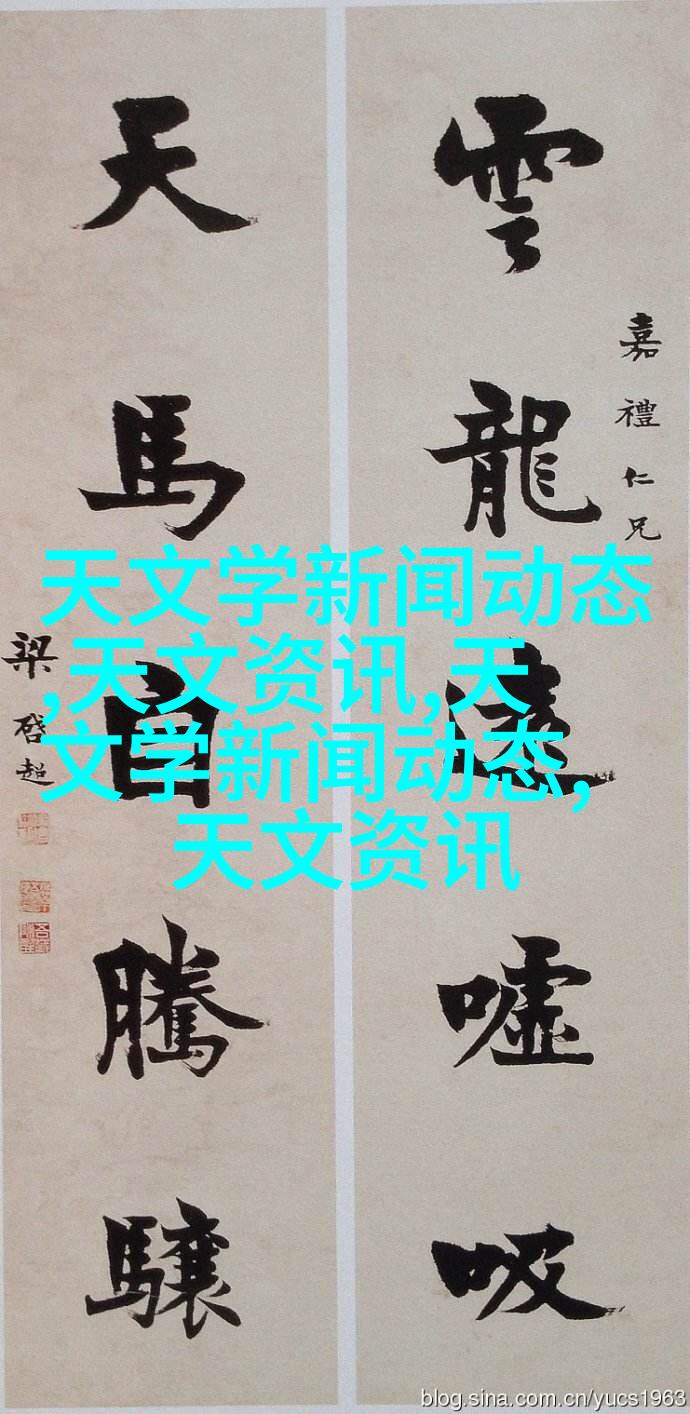 雲龍遠嘘吸
嘉禮仁兄
天馬自騰驤
梁啓超
天文学新闻动态
,天文资讯,天
文学新闻动态,
天文资讯
blog.sina.com.cn/yucs1963